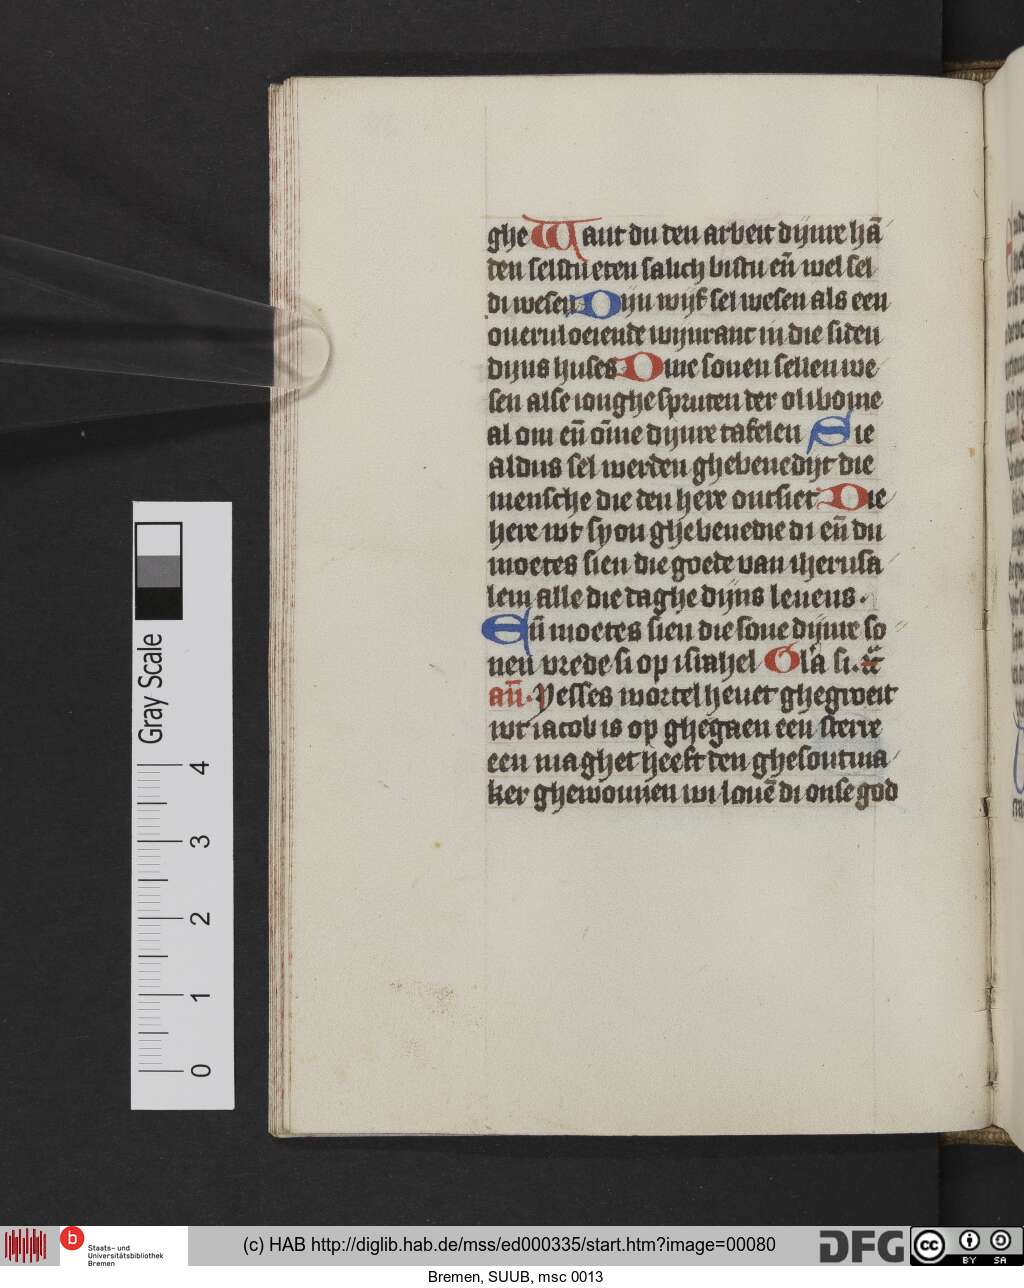 ghe Want du den arbeit dijnre hā
den selstu eten salich bistu eñ wel sel
di wesen Dijn wijf sel wesen als een
oueruloeiende wijnrant in die siden
dijns huses Dine sonen sellen we
sen alse ionghe spruten der olibome
al om eñ ōme dijnre tafelen Sie
aldus sel werden ghebenedijt die
mensche die den here ontsiet Die
here wt syon ghebenedie di eñ du
moetes sien die goede van iherusa
lem alle die daghe dijns leuens.
Eñ moetes sien die sone dijnre so
nen vrede si op israhel Gl'a si. 
añ. Yesses wortel heuet ghegroeit
wt iacob is op ghegaen een sterre
een maghet heeft den ghesontma
ker ghewonnen wi louē di onse god
Gray Scale
4
3
2
1
0
b
Staats- und
Universitätsbibliothek
Bremen
(c) HAB http://diglib.hab.de/mss/ed000335/start.htm?image=00080
DFG
cc
BY SA
Bremen, SUUB, msc 0013